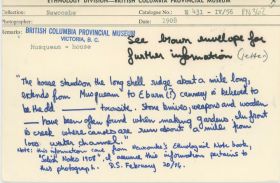 ETHNOLOGY DIVISION—BRITISH COLUMBIA PROVINCIAL MUSEUM
Collection: Newcombe
Catalogue No.: PN 362
Date: 1908
Remarks: BRITISH COLUMBIA PROVINCIAL MUSEUM
VICTORIA, B.C.
Musqueam - house
See brown envelope for
further information (letter)
"The house stands on the long shell ridge about a mile long,
extends from Musqueam to Eburn(?) cannery is believed to
be the old townsite. Stone knives, weapons and wooden
have been often found when making gardens. In front
is creek where canoes are run about ¼ mile from
main water channel."
Note: this information came from Newcombe's Ethnological Note book,
I assume this information pertains to
this photograph. D.S. February 20/76.